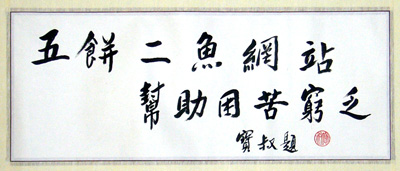 五餅二魚網站
幫助困苦窮乏
寶叔題